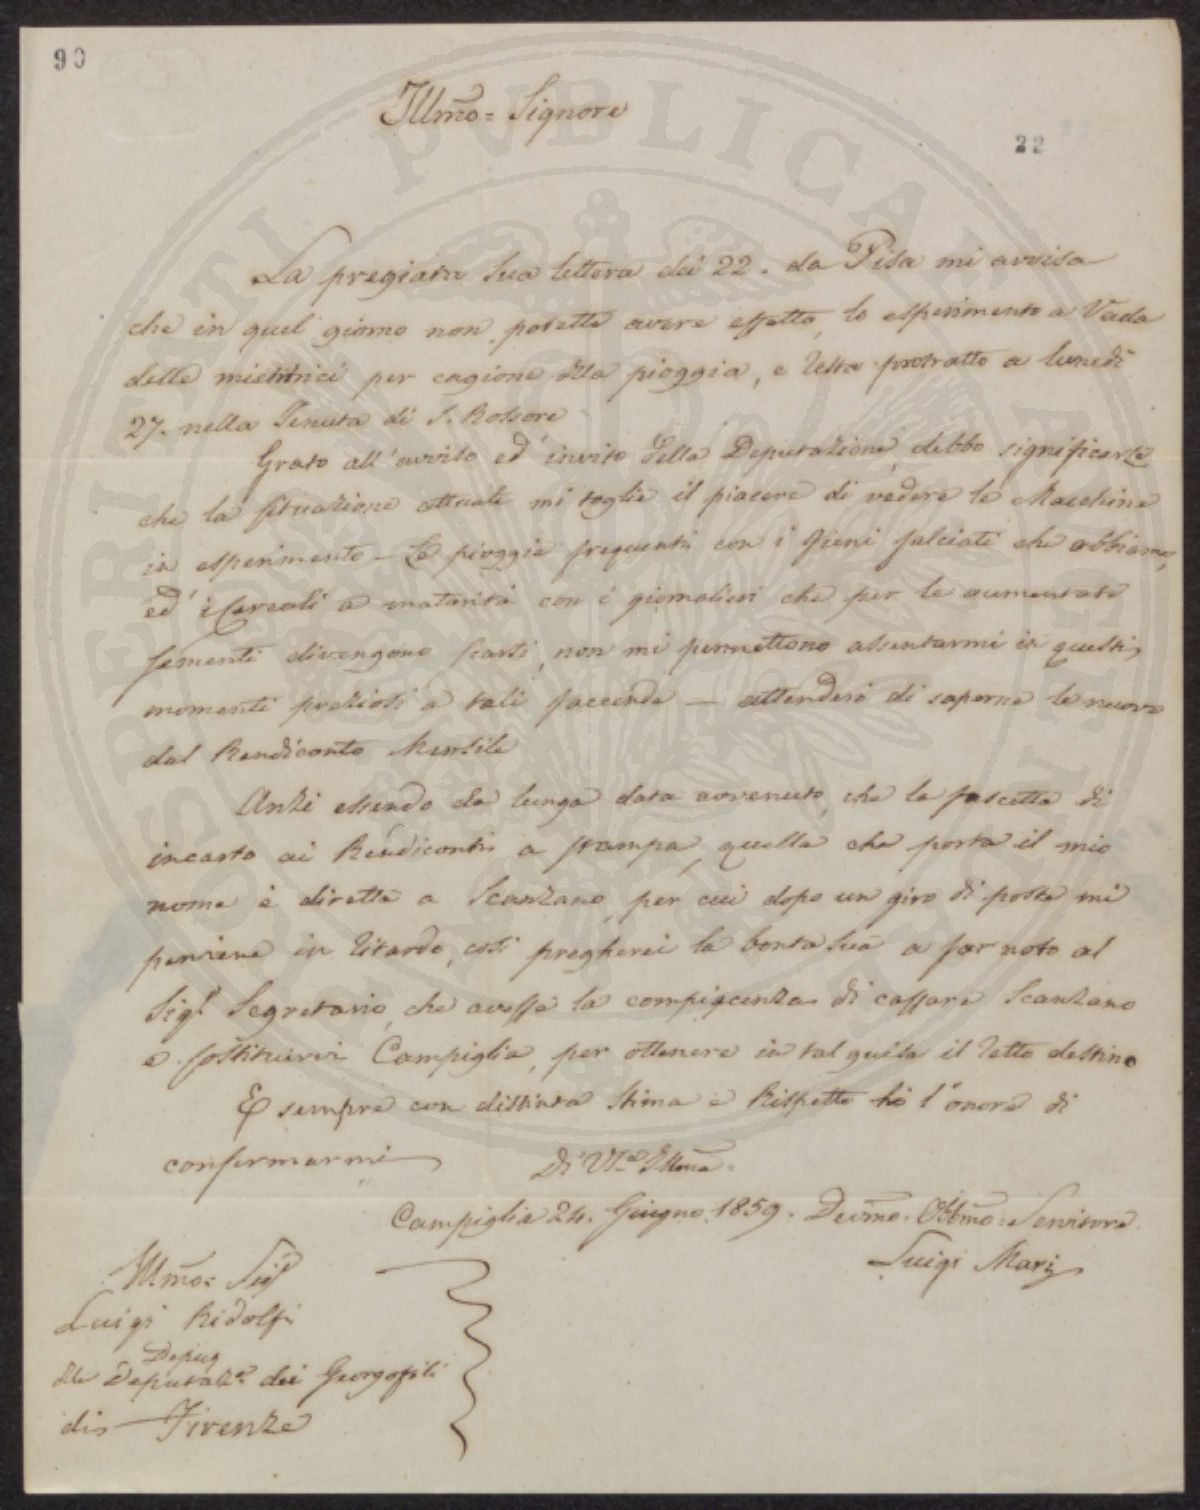 90
Illmo = Signore
22
La pregiata sua lettera dei 22. da Pisa mi avvisa
che in quel giorno non potette avere effetto, lo esperimento a Vada
delle mietitrici per cagione della pioggia, e resta protratto a lunedì
27. nella Tenuta di S. Rossore
Grato all'avviso ed invito della Deputazione, debbo significarle
che la situazione attuale mi toglie il piacere di vedere le Macchine
in esperimento - Le pioggie frequenti con i fieni falciati che abbiamo,
ed i Cereali a maturità con i giornalieri che per le aumentate
sementi divengono scarsi, non mi permettono assentarmi in questi
momenti preziosi a tali faccende — attenderò di saperne le nuove
dal Rendiconto Mensile
Anzi essendo da lunga data avvenuto, che la fascetta di
incarto ai Rendiconti a stampa, quella che porta il mio
nome è diretta a Scanzano, per cui dopo un giro di posta mi
perviene in ritardo, così pregherei la bontà sua a far noto al
Sigr Segretario, che avesse la compiacenza di cassare Scanzano
e sostituirvi Campiglia, per ottenere in tal guisa il retto destino
E sempre con distinta stima e Rispetto ho l'onore di
confermarmi
Di VS. Illma.
Campiglia 24. Giugno 1859. Devmo. Obbmo. Servitore
Luigi Mari
Illmo. Sigr
Luigi Ridolfi
Depug
dlla Deputaze. dei Georgofili
di Firenze
SOSPERITATI PUBLICAE AUGENDAE